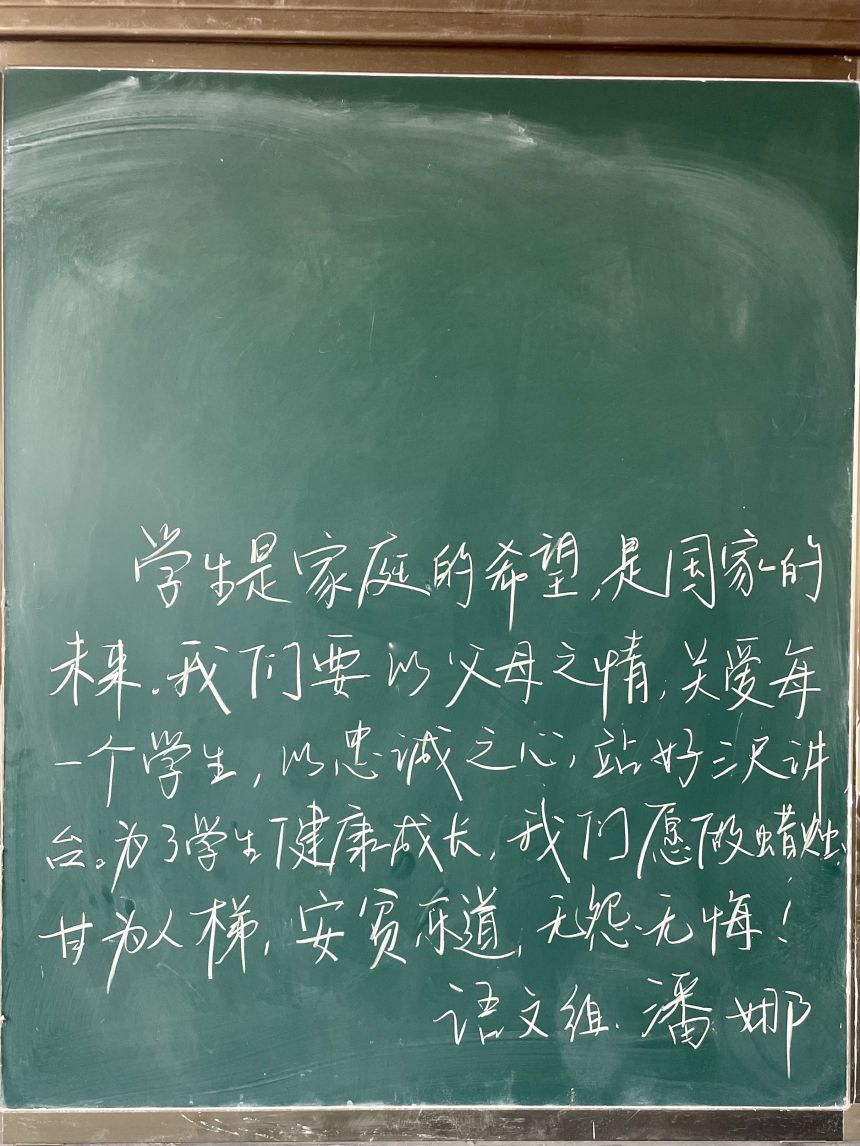 学生是家庭的希望,是国家的
未来。我们要以父母之情,关爱每
一个学生,以忠诚之心,站好三尺讲
台。为了学生健康成长,我们愿做蜡烛,
甘为人梯,安贫乐道,无怨无悔!
语文组.潘娜